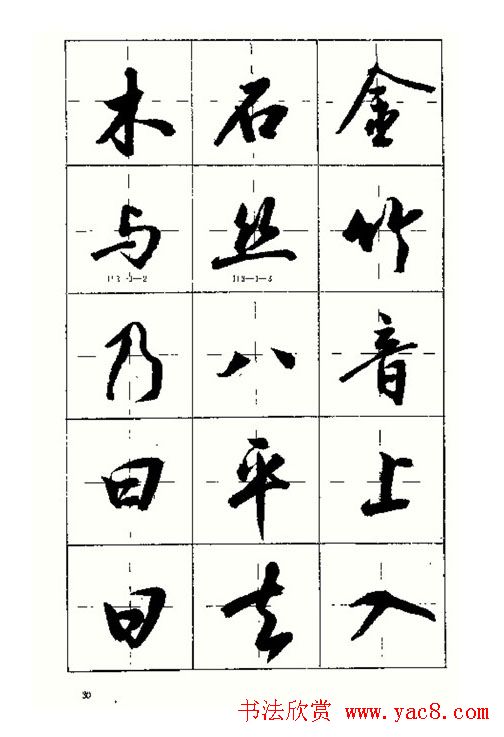 木石金
与丝竹
乃八音
曰平上
曰去入
30
书法欣赏 www.yac8.com